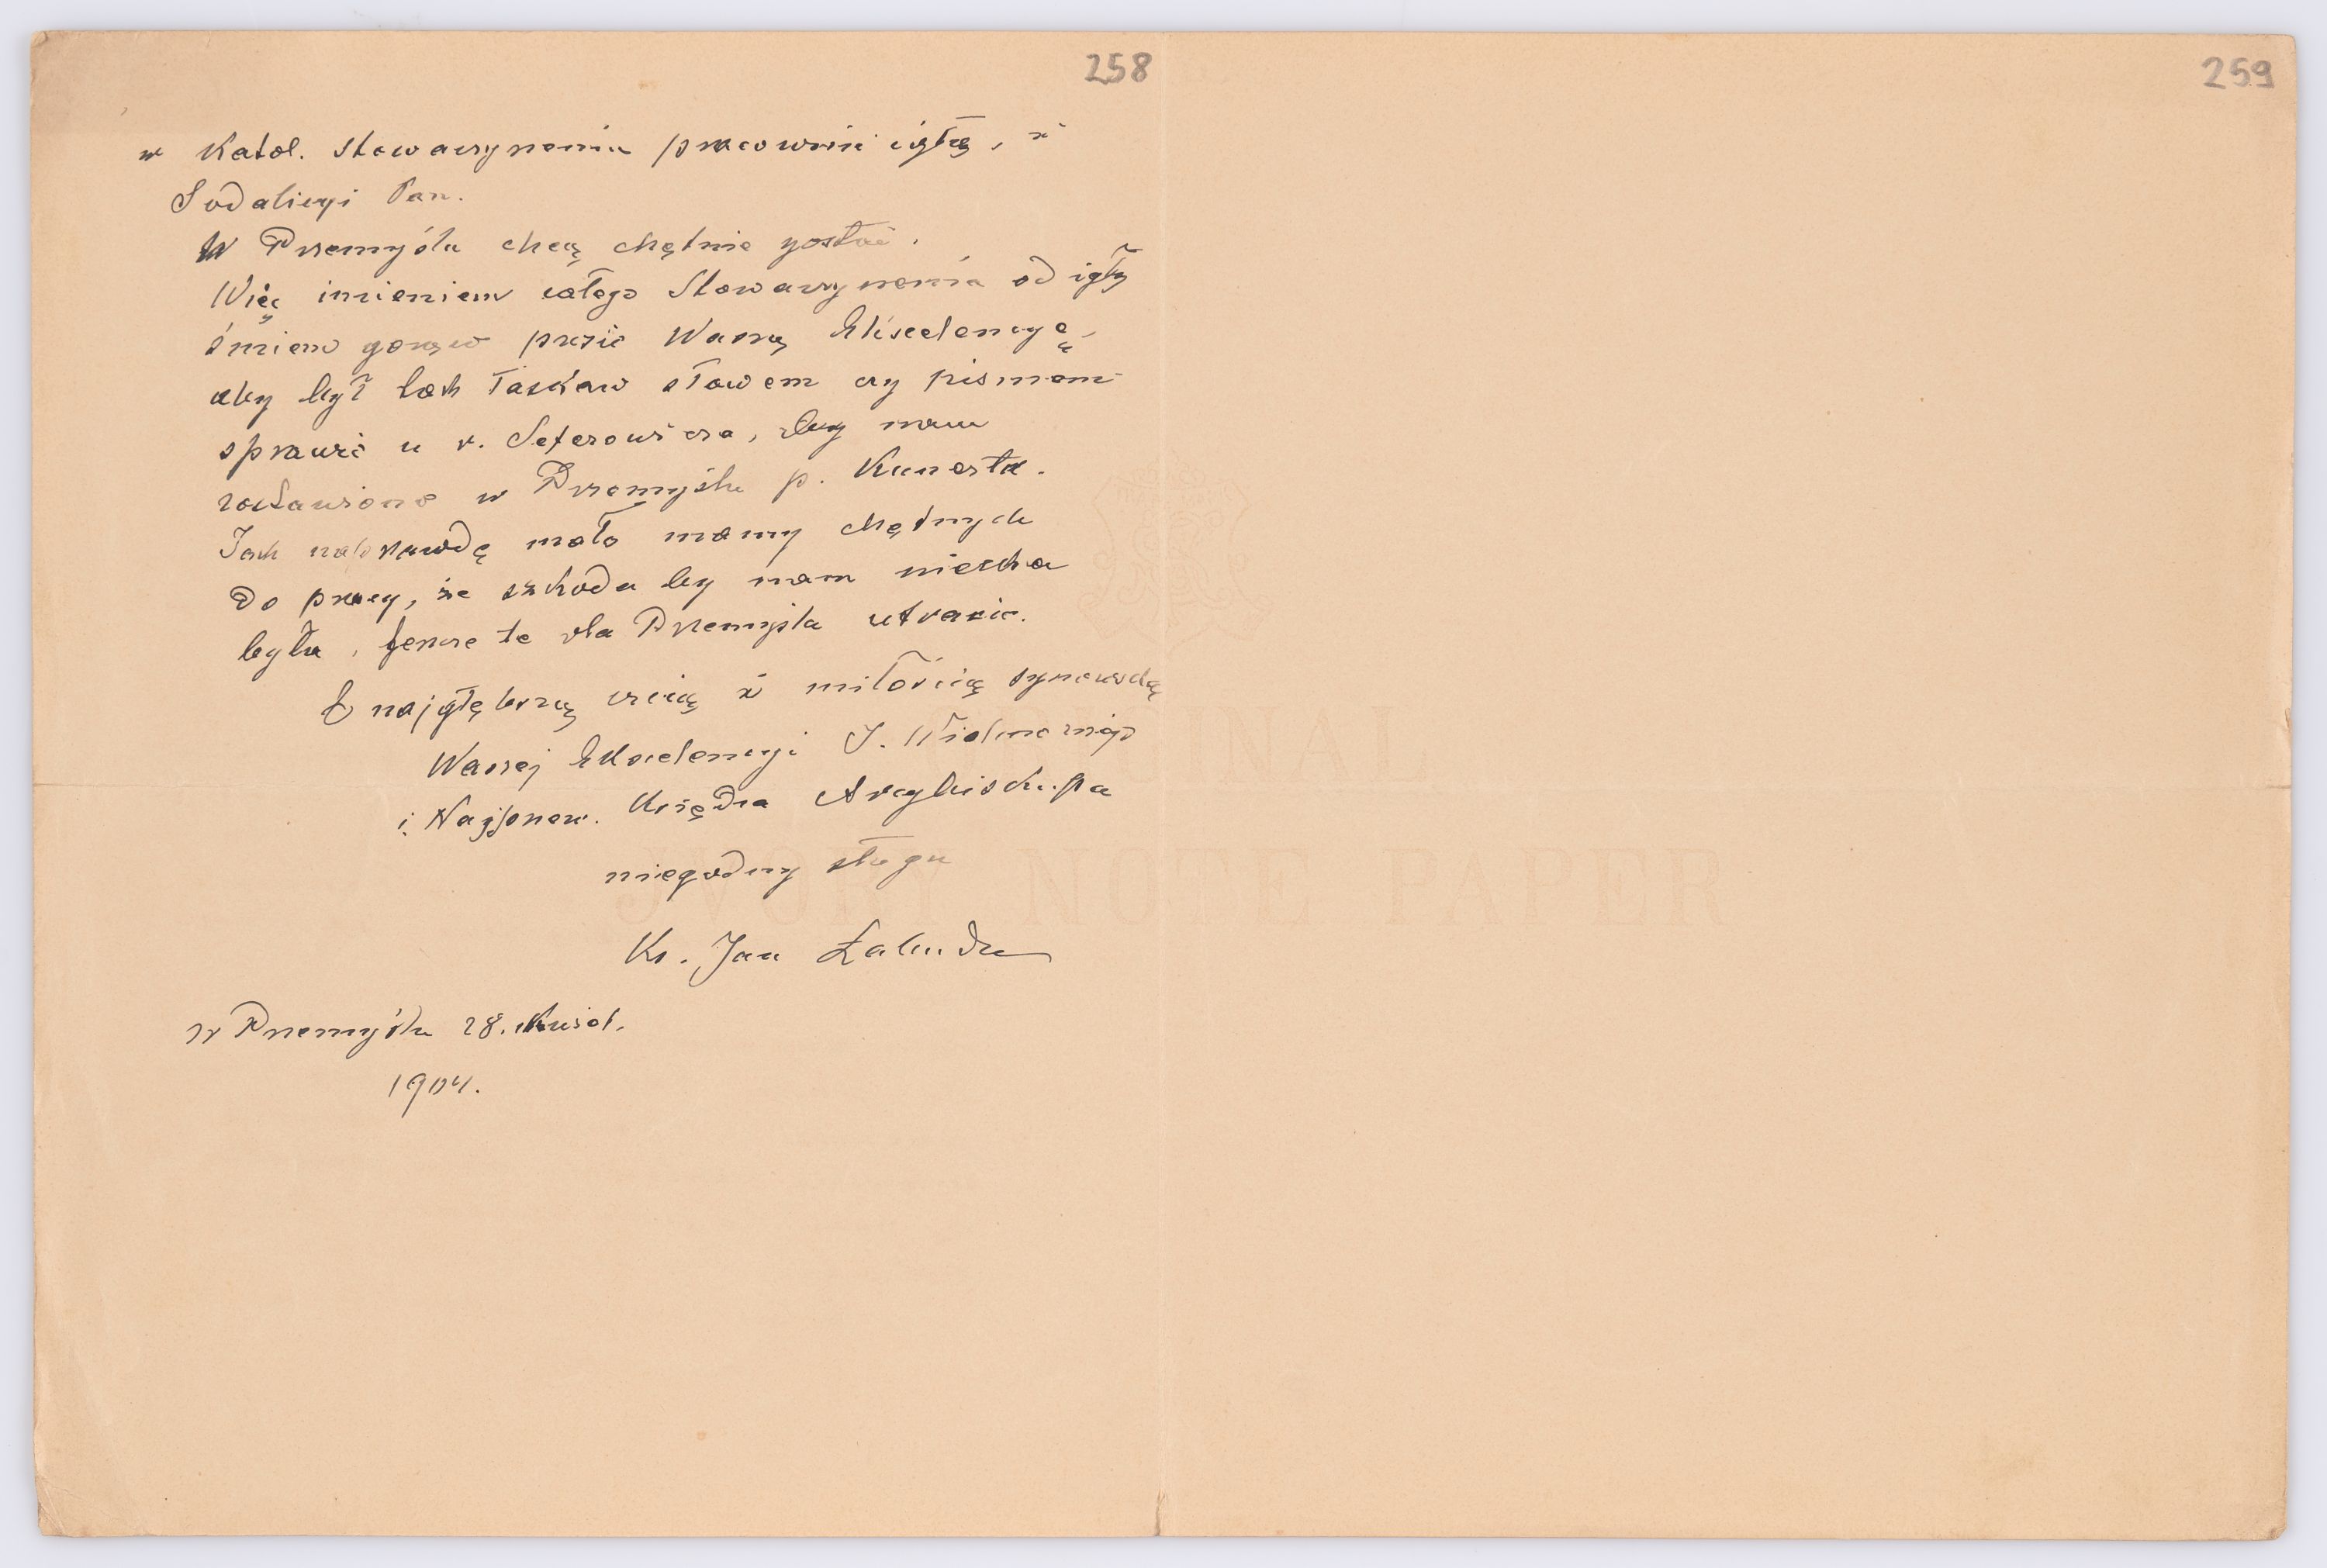 258
259
w Katol. Stowarzyszeniu pracownic igłą, i
Sodalicyi Pan.
W Przemyślu chcą chętnie zostać.
Więc imieniem całego Stowarzyszenia od igły
śmiem gorąco prosić Waszą Ekscelencyę,
aby był tak łaskaw słowem czy pismem
sprawić u r. , aby nam
zostawiono w Przemyślu p. Kunerta.
Tak naprawdę mało mamy chętnych
do pracy, że szkoda by nam niech
była, te dla Przemyśla utracić.
Z najgłębszą czcią i miłością synowską
Waszej Ekscelencyi J.
i Najprzew. Księdza Arcybiskupa
niegodny sługa
Ks. Jan Łabuda
w Przemyślu 28.
1904.
IVORY NOTE PAPER